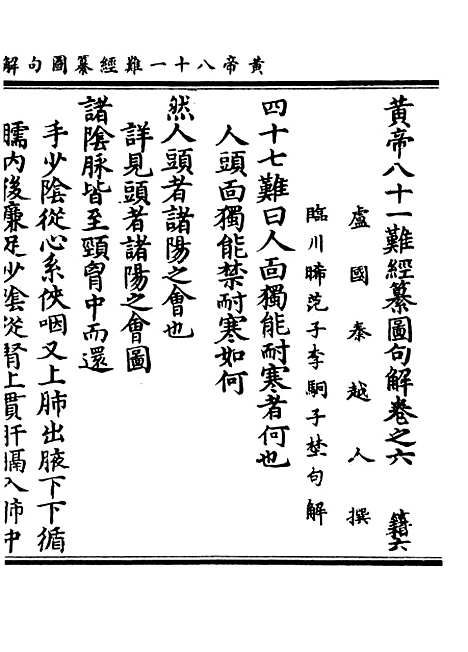 黃帝八十一難經纂圖句解
黃帝八十一難經纂圖句解卷之六　籍六
盧國秦越人撰
臨川晞范子李駉子埜句解
四十七難曰人面獨能耐寒者何也
人頭面獨能禁耐寒如何
然人頭者諸陽之會也
詳見頭者諸陽之會圖
諸陰脉皆至頸胷中而還
手少陰從心系俠咽又上肺出腋下下循
臑内後廉足少陰從腎上貫肝膈入肺中